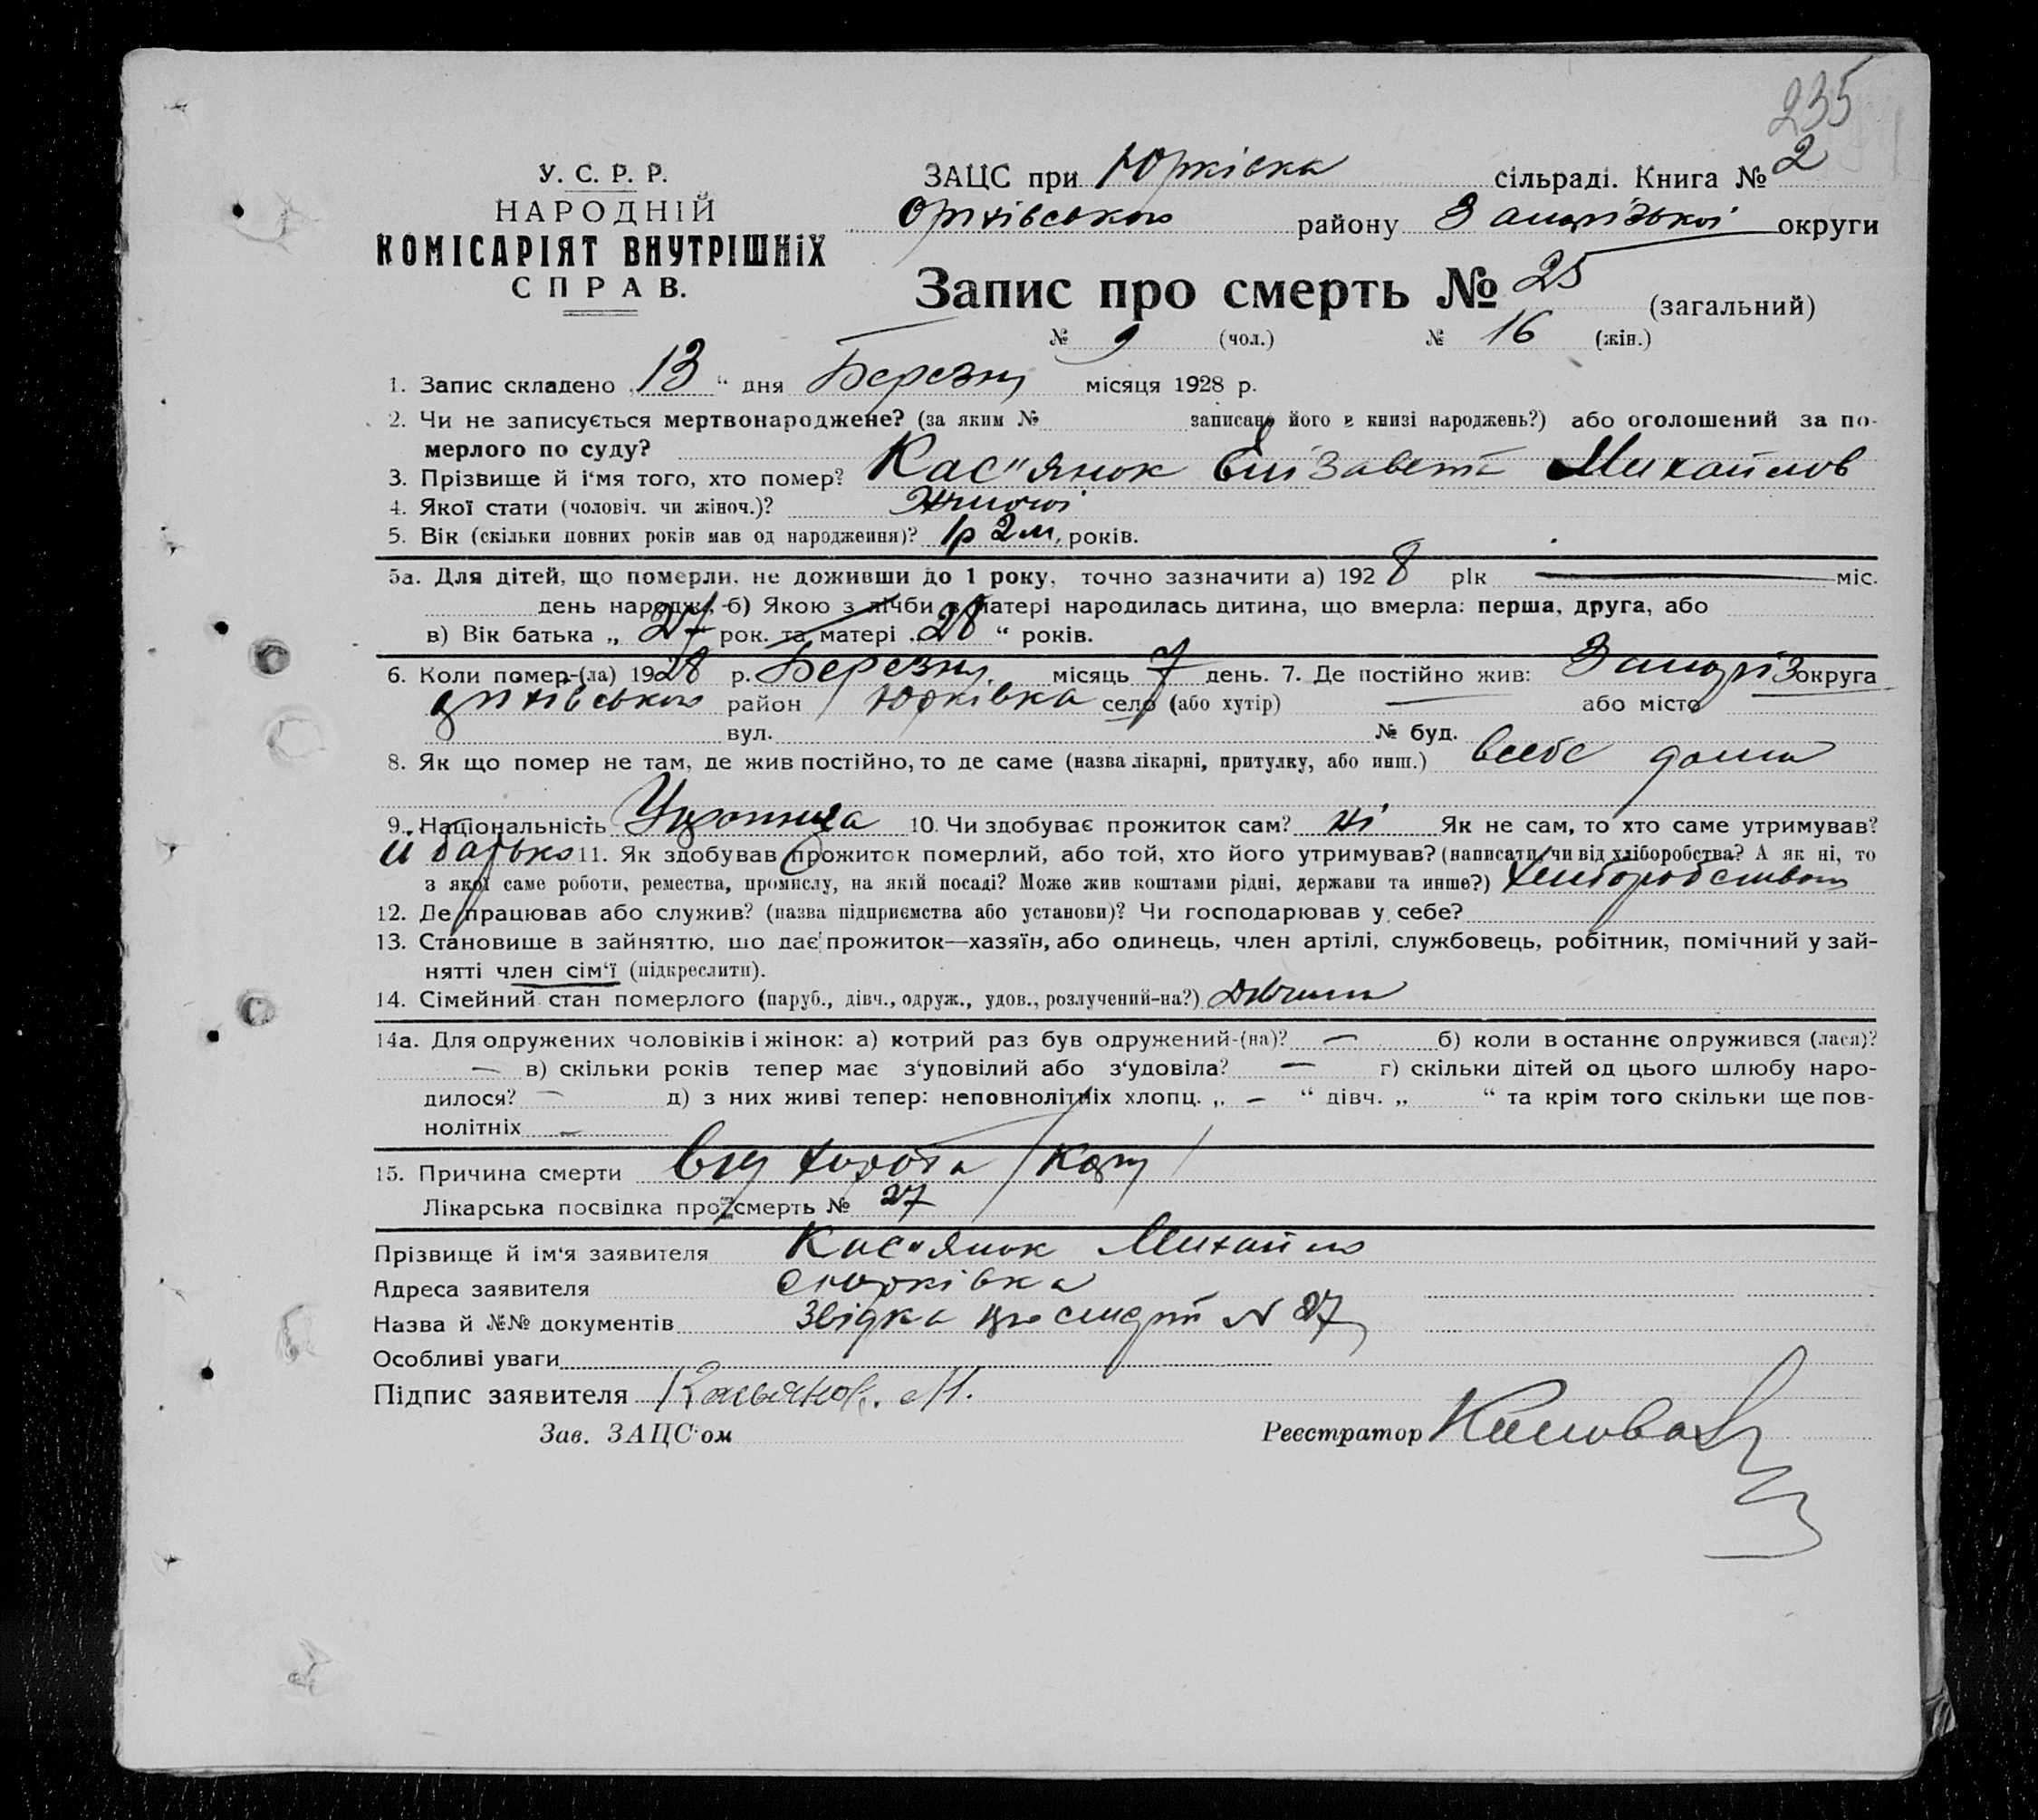 235
У. С. Р. Р.
НАРОДНІЙ
КОМІСАРІЯТ ВНУТРІШНІХ
СПРАВ.
ЗАЦС при Юрківка сільраді. Книга № 2
Оріхівського району Запорізької округи
Запис про смерть № 25 (загальний)
№ 9 (чол.) № 16 (жін.)
1. Запис складено „13“ дня Березня місяця 1928 р.
2. Чи не записується мертвонароджене? (за яким № записано його в книзі народжень?) або оголошений за по-
мерлого по суду?
3. Прізвище й і'мя того, хто помер? Кас"янюк Єлізавета Михайлов
4. Якої стати (чоловіч. чи жіноч.)? Жіночої
5. Вік (скільки повних років мав од народження)? 1р 2м, років.
5а. Для дітей, що померли, не доживши до 1 року, точно зазначити а) 1928 рік — міс.
день народж., б) Якою з лічби в матері народилась дитина, що вмерла: перша, друга, або
в) Вік батька „27 рок. та матері „28“ років.
6. Коли помер-(ла) 1928 р. Березня, місяць 7 день. 7. Де постійно жив: Запоріз округа
Оріхівського район Юрківка село (або хутір) — або місто
вул. № буд.
8. Як що помер не там, де жив постійно, то де саме (назва лікарні, притулку, або инш.) всебе дома
9. Національність 10. Чи здобуває прожиток сам? ні Як не сам, то хто саме утримував?
її батько 11. Як здобував прожиток померлий, або той, хто його утримував? (написати, чи від хліборобства? А як ні, то
з якої саме роботи, ремества, промислу, на якій посаді? Може жив коштами рідні, держави та инше?) Хліборобством
12. Де працював або служив? (назва підприємства або установи)? Чи господарював у себе?
13. Становище в зайняттю, що дає прожиток—хазяїн, або одинець, член артілі, службовець, робітник, помічний у зай-
нятті член сім'ї (підкреслити).
14. Сімейний стан померлого (паруб., дівч., одруж., удов., розлучений-на?) Дівчина
14а. Для одружених чоловіків і жінок: а) котрий раз був одружений-(на)? — б) коли востаннє одружився (лася)?
— в) скільки років тепер має з'удовілий або з'удовіла? — г) скільки дітей од цього шлюбу наро-
дилося? — д) з них живі тепер: неповнолітніх хлопц. „ — “ дівч. „ “ та крім того скільки ще пов-
нолітніх —
15. Причина смерти від /Кору/
Лікарська посвідка про смерть № 27
Прізвище й ім'я заявителя Кас"янюк Михайло
Адреса заявителя с Юрківка
Назва й №№ документів Звідка про смерть N 27
Особливі уваги
Підпис заявителя Касьянюк. М.
Зав. ЗАЦС'ом Реєстратор